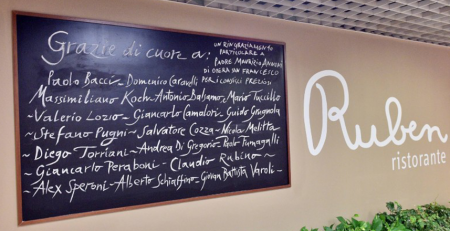 Grazie di cuore a:
UN RINGRAZIAMENTO
PARTICOLARE A
PADRE MAURIZIO ANNONI
DI OPERA SAN FRANCESCO
PER I CONSIGLI PREZIOSI
Paolo Bacci ~ Domenico Caravelli
Massimiliano Koch ~ Antonio Balsamo ~ Mario Tuccillo
~ Valerio Lozio ~ Giancarlo Camolori ~ Guido Grugnola
~ Stefano Pugni ~ Salvatore Cozza ~ Nicola Melitta
~ Diego Torriani ~ Andrea Di Gregorio ~ Paolo Fumagalli
~ Giancarlo Peraboni ~ Claudio Rubino ~
~ Alex Speroni ~ Alberto Schiaffino ~ Giovan Battista Varoli ~
Ruben
ristorante